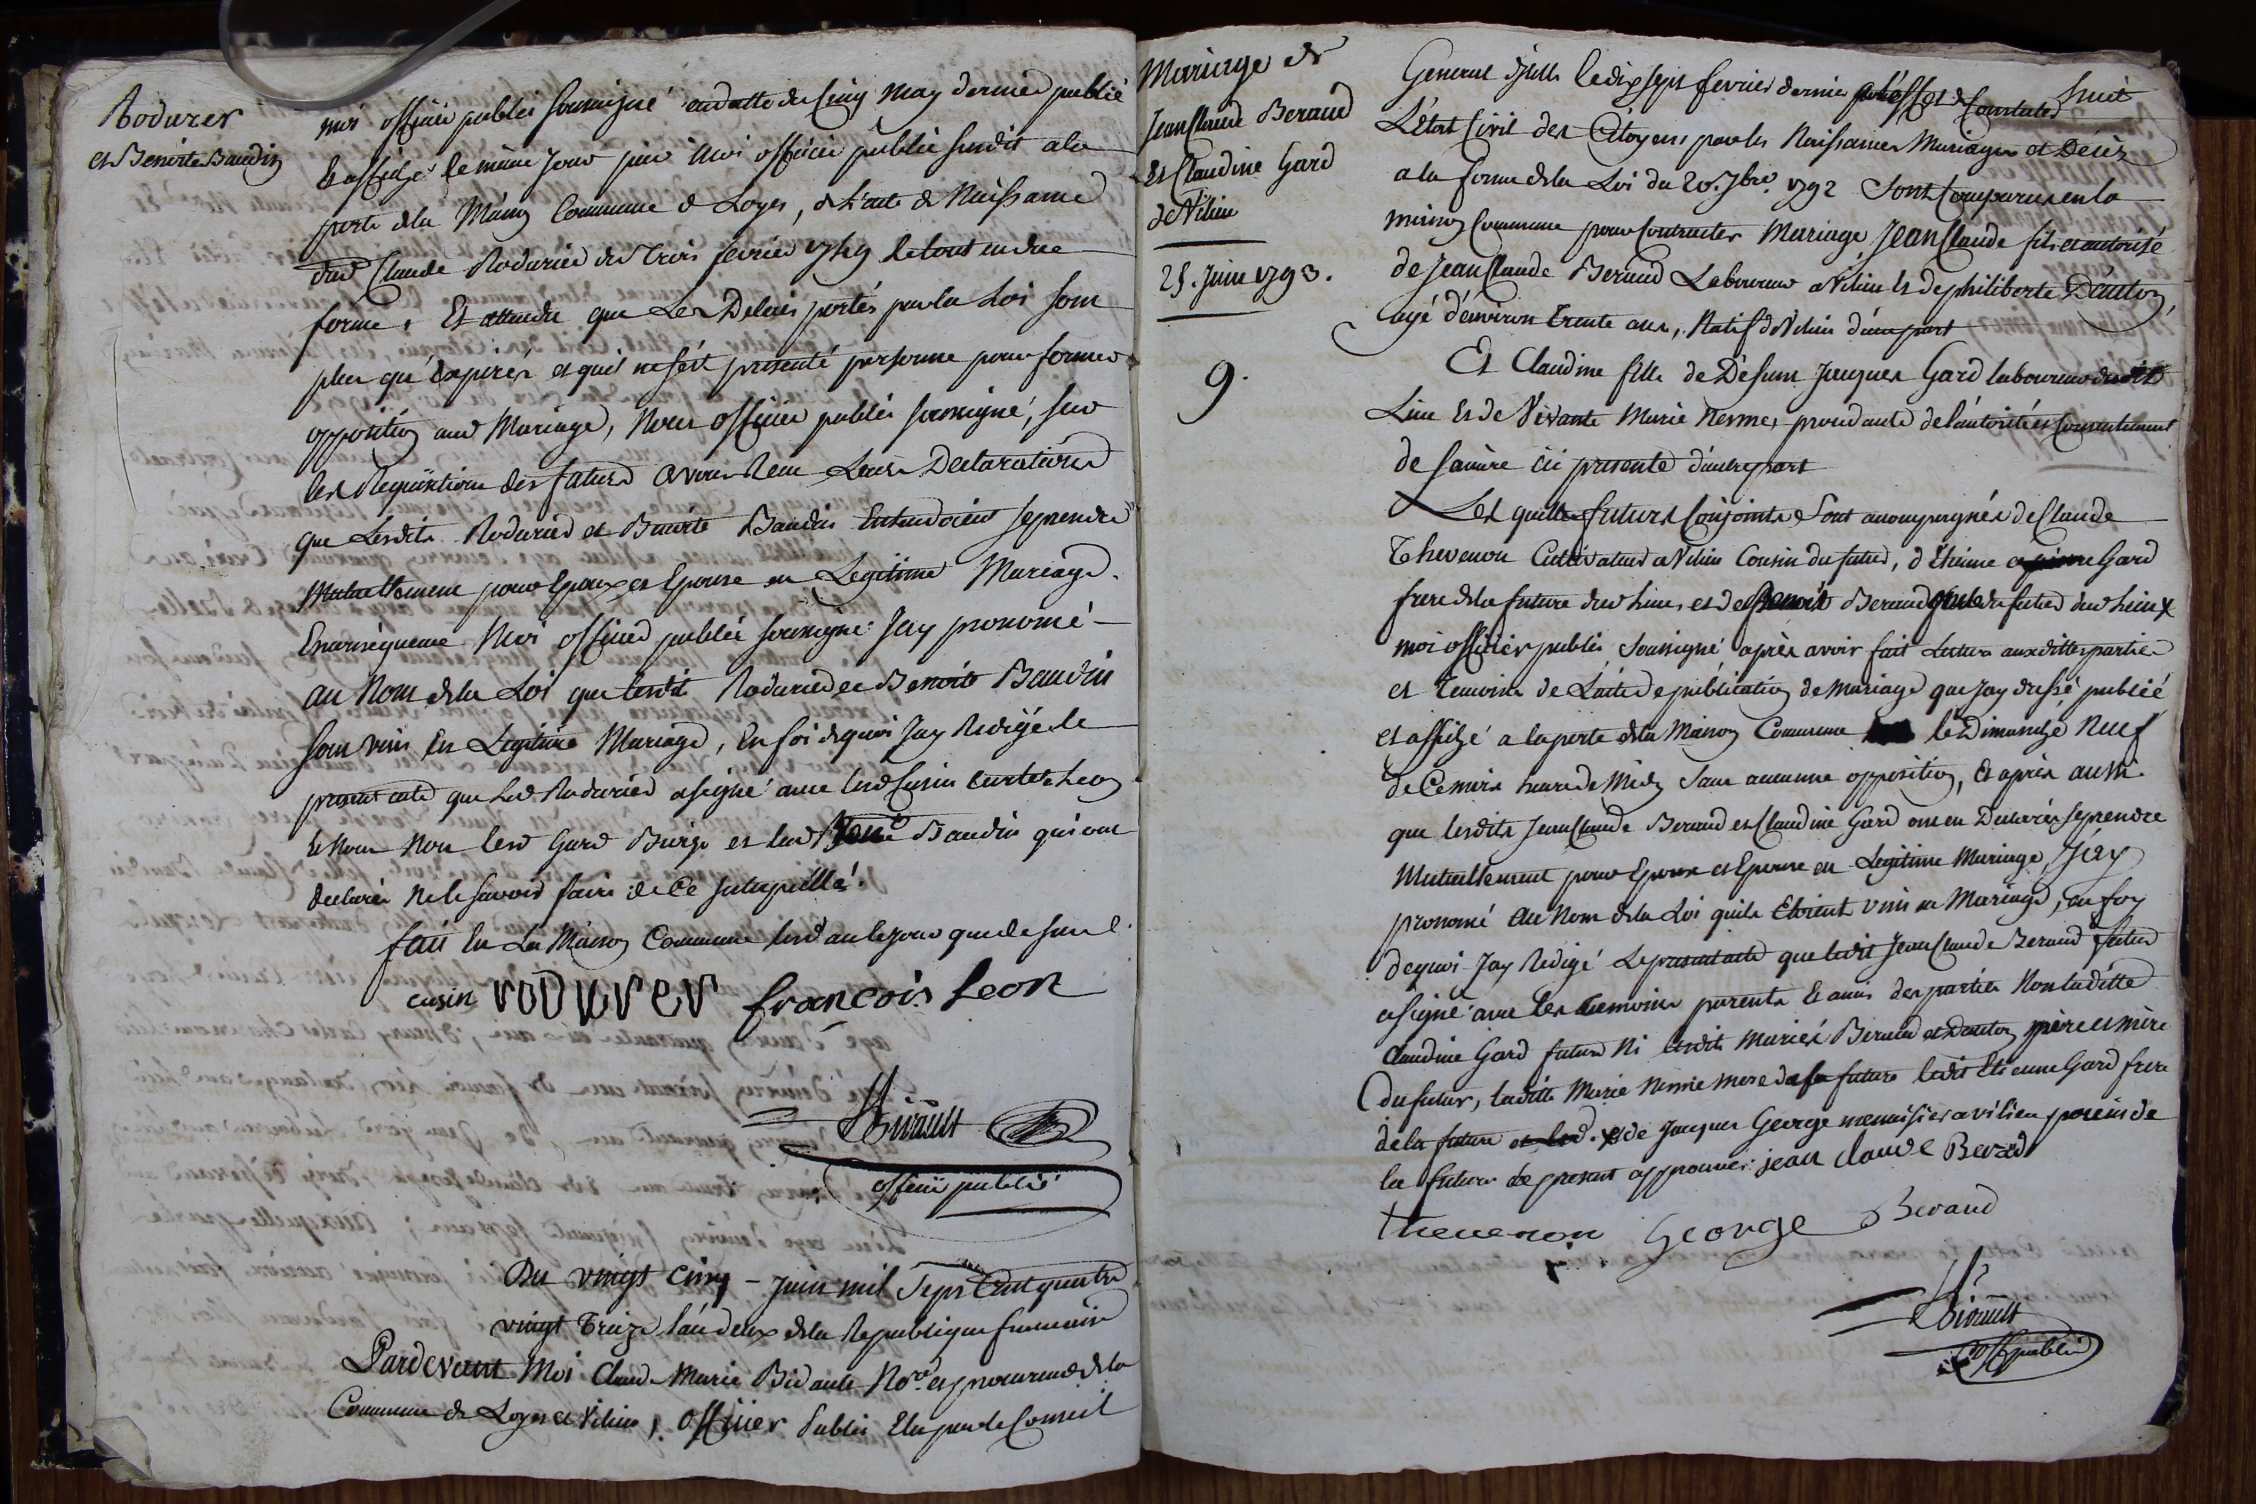 Rodurer
et Benoite Baudin
moi officier public soussigné en datte du Cinq may dernier publié
& affiché le même jour par moi officier public susdit a la
porte de la Maison Commune de Loyes, de L'acte de Naissance
dud Claude Rodurier du Trois fevrier 1749 le tout en due
forme, Et attendu que Les Delais portés par la Loi sont
plus qu'expirés et quil ne s'est presenté personne pour former
opposition aud Mariage, Nous officier public soussigné, sur
les Requisitions des futurs avons Reçu Leurs Declarations
que Lesdits Rodurier et Benoite Baudin Entendoient se prendre
Mutuellement pour Epoux et Epouse en Legitime Mariage.
En consequence Moi officier public soussigné Jay pronomé
au Nom de la Loi que lesdits Rodurier et Benoite Baudin
sont unis En Legitime Mariage, En foi de quoi Jay Redigé le
present acte que Led Rodurier a signé avec lesd Cusin et Leon
& Non Non lesd Gard et lad Baudin qui ont
declarés Ne le savoir faire de Ce Interpellés.
fait En La Maison Commune lesd an & jour que dessus
cusin rodurer francois Leon
Bidault
officier public
Du vingt cinq - Juin mil Sept Cent quatre
vingt Treize l'an deux de la Republique francaise
Pardevant Moi Claude Marie Bidault No.re et procureur de la
Commune de Loyes et Vilieu, officier Public Elu par le Conseil
Mariage de
Jean Claude Beraud
Et Claudine Gard
de Vilieu
25. Juin 1793.
9.
huit
General d'jcelle le dix sept fevrier dernier a l'effet de Constater
L'état Civil des Citoyens par les Naissances Mariages et Décès
a la forme de la Loi du 20. 7bre. 1792 Sont Comparus en la
maison Commune pour Contracter Mariage Jean Claude fils et autorisé
de Jean Claude Beraud Laboureur a Vilieu & de philiberte Dauton,
agé d'environ trente ans, Natif de Vilieu d'une part
Et Claudine fille de Defunt Jacques Gard laboureur dudit
Lieu & de Vivante Marie Nerme, procedante de l'autorité et Consentement
de sa mère ici presente d'autre part
Les quels futurs Conjoints Sont accompagnés de Claude
Thevenon Cultivateur a Vilieu Cousin du futur, d'Etienne Gard
frere de la future dud Lieu, et de Benoit Beraud du futur dud Lieu x
moi officier public soussigné après avoir fait Lecture auxdittes parties
et temoins de L'acte de publication de mariage que Jay dressé publié
et affiché a la porte de la Maison Commune le Dimanche Neuf
de Ce mois heure de Midy sans aucune opposition, Et après aussi
que lesdits Jean Claude Beraud et Claudine Gard ont eu Declarés se prendre
Mutuellement pour Epoux et Epouse en Legitime Mariage, J'ay
pronomé au Nom de la Loi quils Etoient unis en Mariage, en foy
de quoi Jay Redigé Le present acte que ledit Jean Claude Beraud futur
a signé avec les temoins parents & amis des parties Non laditte
Claudine Gard future Ni lesdits Mariés Beraud et Dauton père et mère
du futur, laditte Marie Nerme mere de la future ledit Etienne Gard frere
de la future x de Jacques George menuisier a vilieu de
la future de present approuvé. jean claude Berad
thevenon George Beraud
Bidault
off public